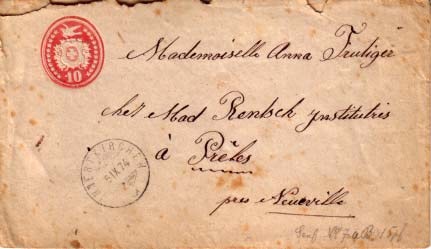 10
Mademoiselle Anna Frutiger
chez Mad Rentsch Institutris
à Prêles
près Neuveville
5 IX 74